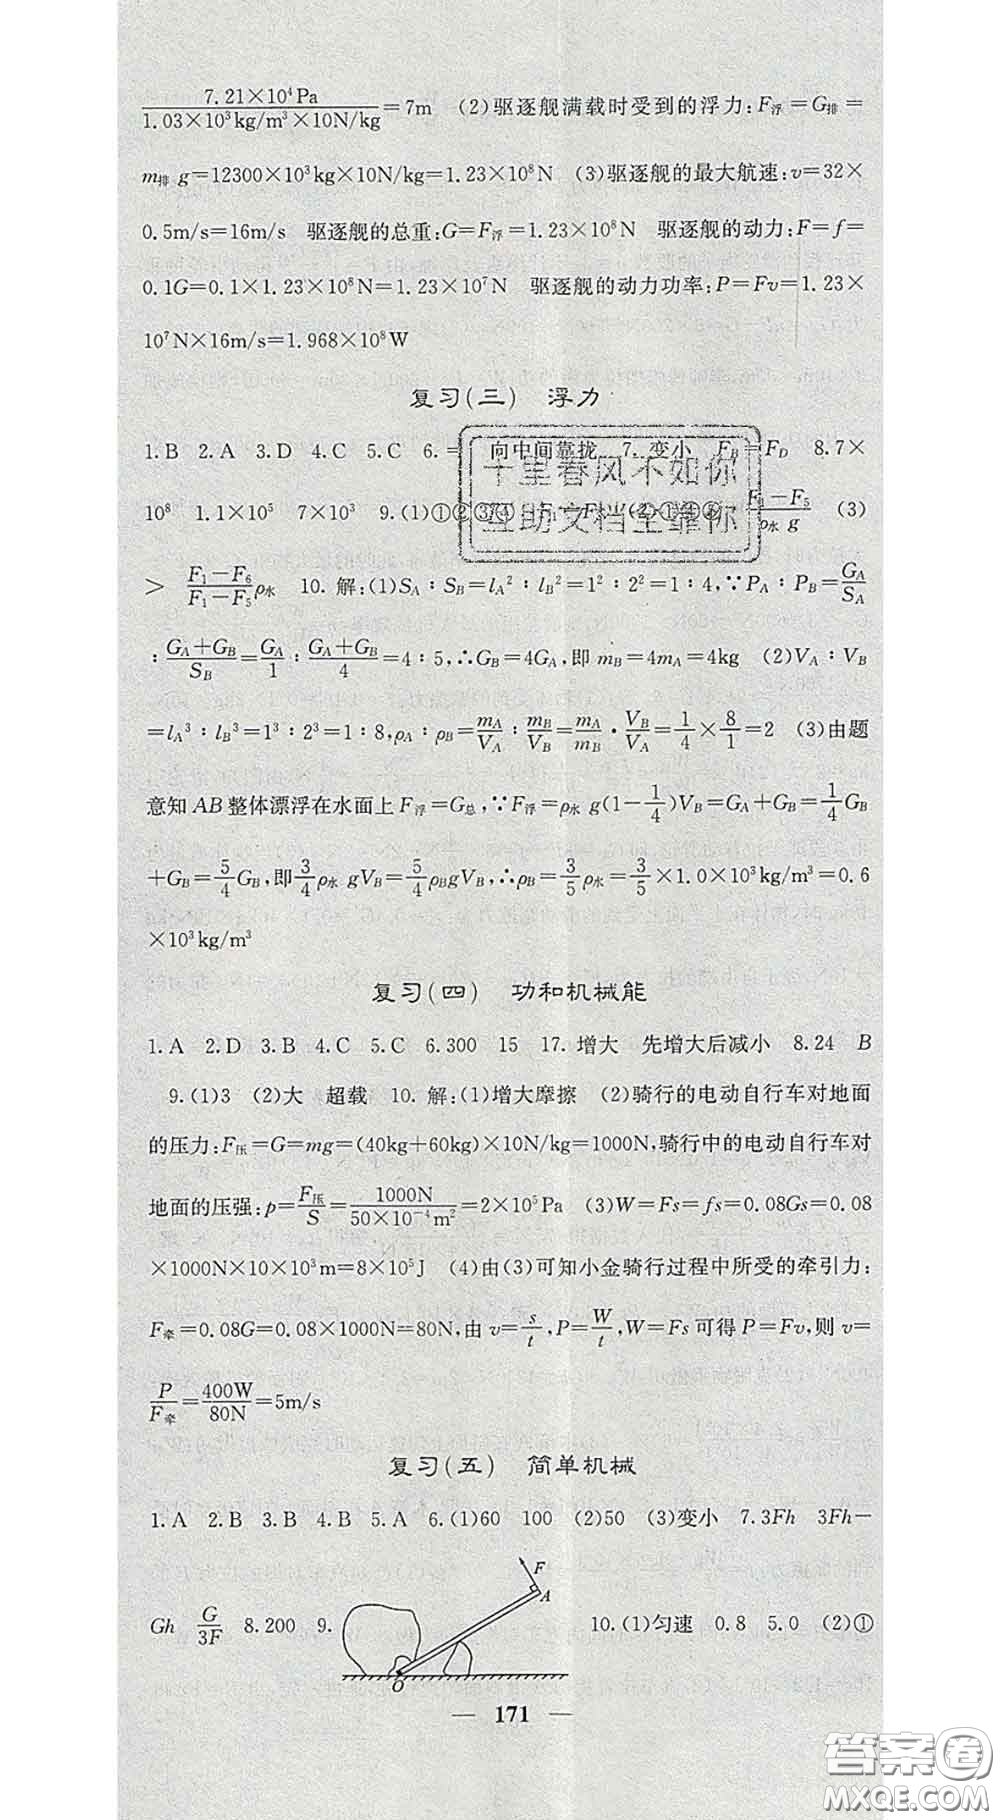 7.21×10⁴Pa/1.03×10³kg/m³×10N/kg=7m (2)驱逐舰满载时受到的浮力:F浮=G排=
m排 g=12300×10³kg×10N/kg=1.23×10⁸N (3)驱逐舰的最大航速:v=32×
0.5m/s=16m/s 驱逐舰的总重:G=F浮=1.23×10⁸N 驱逐舰的动力:F=f=
0.1G=0.1×1.23×10⁸N=1.23×10⁷N 驱逐舰的动力功率:P=Fv=1.23×
10⁷N×16m/s=1.968×10⁸W
复习(三) 浮力
1.B 2.A 3.D 4.C 5.C 6.= 向中间靠拢 7. 变小 F_B=F_D 8.7×
10⁸ 1.1×10⁵ 7×10³ 9.(1)①②③④ F₁−F₅/ρ水 g (3)
> F₁−F₆/F₁−F₅ρ水 10.解:(1)S_A∶S_B=l_A²∶l_B²=1²∶2²=1∶4,∵P_A∶P_B=G_A/S_A
∶G_A+G_B/S_B=G_A/1∶G_A+G_B/4=4∶5,∴G_B=4G_A,即 m_B=4m_A=4kg (2)V_A∶V_B
=l_A³∶l_B³=1³∶2³=1∶8,ρ_A∶ρ_B=m_A/V_A∶m_B/V_B=m_A/m_B·V_B/V_A=1/4×8/1=2 (3)由题
意知AB整体漂浮在水面上F浮=G总,∵F浮=ρ水 g(1−1/4)V_B=G_A+G_B=1/4G_B
+G_B=5/4G_B,即3/4ρ水 gV_B=5/4ρ_BgV_B,∴ρ_B=3/5ρ水=3/5×1.0×10³kg/m³=0.6
×10³kg/m³
复习(四) 功和机械能
1.A 2.D 3.B 4.C 5.C 6.300 15 17. 增大 先增大后减小 8.24 B
9.(1)3 (2)大 超载 10.解:(1)增大摩擦 (2)骑行的电动自行车对地面
的压力:F压=G=mg=(40kg+60kg)×10N/kg=1000N,骑行中的电动自行车对
地面的压强:p=F压/S=1000N/50×10⁻⁴m²=2×10⁵Pa (3)W=Fs=fs=0.08Gs=0.08
×1000N×10×10³m=8×10⁵J (4)由(3)可知小金骑行过程中所受的牵引力:
F牵=0.08G=0.08×1000N=80N,由v=s/t,P=W/t,W=Fs可得P=Fv,则v=
P/F牵=400W/80N=5m/s
复习(五) 简单机械
1.A 2.B 3.B 4.B 5.A 6.(1)60 100 (2)50 (3)变小 7.3Fh 3Fh−
Gh G/3F 8.200 9. F A O 10.(1)匀速 0.8 5.0 (2)①
— 171 —
千里春风不如你
互助文档全靠你
答案圈
MXQE.COM